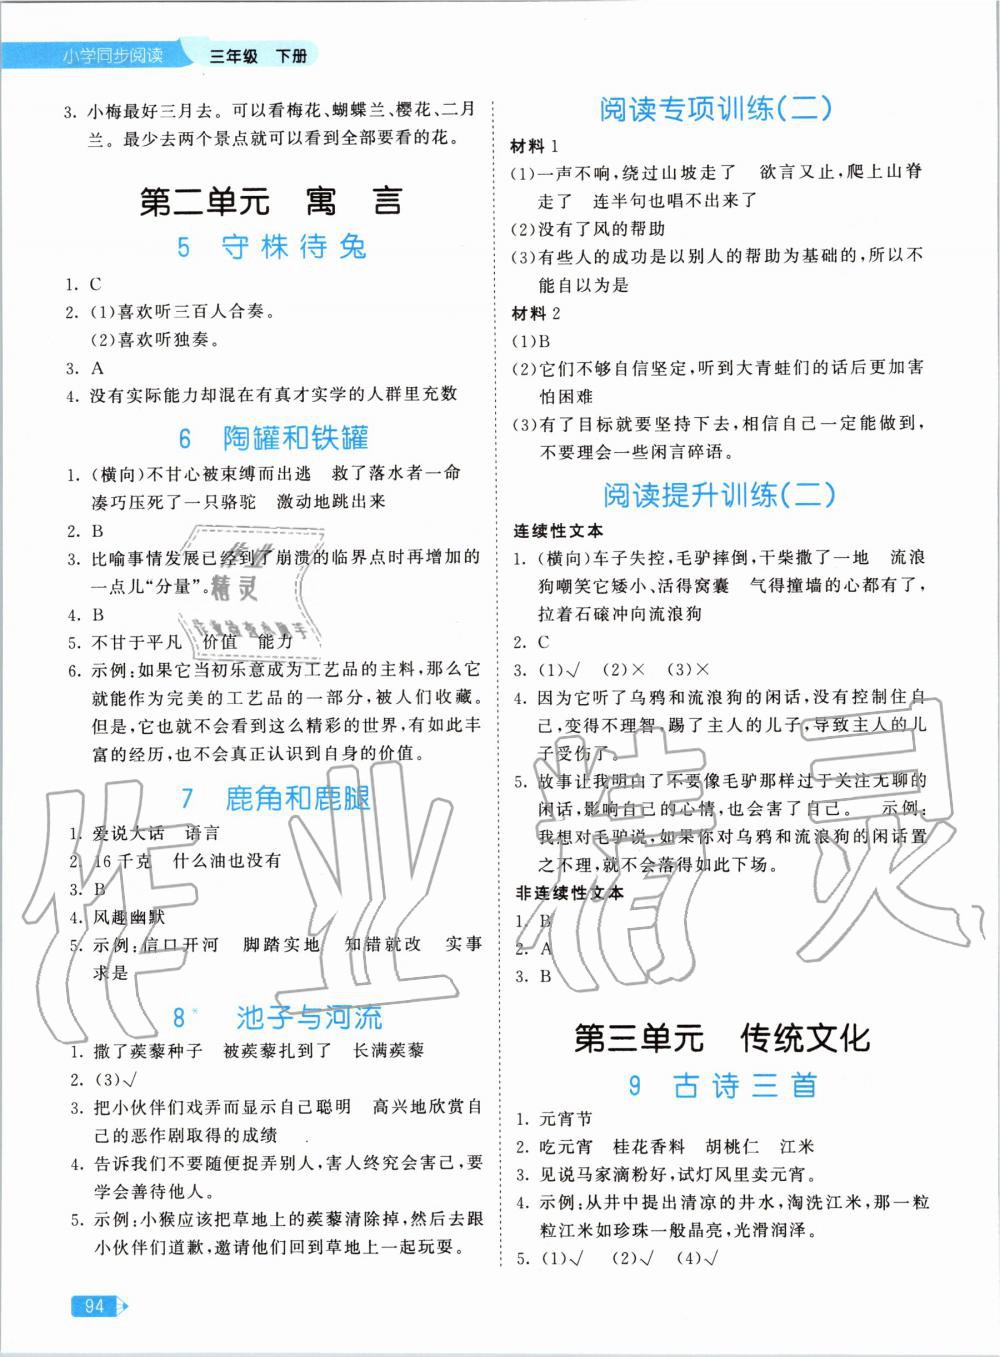 小学同步阅读 三年级 下册
3. 小梅最好三月去。可以看梅花、蝴蝶兰、樱花、二月
兰。最少去两个景点就可以看到全部要看的花。
第二单元 寓 言
5 守株待兔
1. C
2. (1)喜欢听三百人合奏。
(2)喜欢听独奏。
3. A
4. 没有实际能力却混在有真才实学的人群里充数
6 陶罐和铁罐
1. (横向)不甘心被束缚而出逃 救了落水者一命
凑巧压死了一只骆驼 激动地跳出来
2. B
3. 比喻事情发展已经到了崩溃的临界点时再增加的
一点儿“分量”。
4. B
5. 不甘于平凡 价值 能力
6. 示例:如果它当初乐意成为工艺品的主料,那么它
就能作为完美的工艺品的一部分,被人们收藏。
但是,它也就不会看到这么精彩的世界,有如此丰
富的经历,也不会真正认识到自身的价值。
7 鹿角和鹿腿
1. 爱说大话 语言
2. 16千克 什么油也没有
3. B
4. 风趣幽默
5. 示例:信口开河 脚踏实地 知错就改 实事
求是
8* 池子与河流
1. 撒了蒺藜种子 被蒺藜扎到了 长满蒺藜
2. (3)√
3. 把小伙伴们戏弄而显示自己聪明 高兴地欣赏自
己的恶作剧取得的成绩
4. 告诉我们不要随便捉弄别人,害人终究会害己,要
学会善待他人。
5. 示例:小猴应该把草地上的蒺藜清除掉,然后去跟
小伙伴们道歉,邀请他们到草地上一起玩耍。
94
阅读专项训练(二)
材料1
(1)一声不响,绕过山坡走了 欲言又止,爬上山脊
走了 连半句也唱不出来了
(2)没有了风的帮助
(3)有些人的成功是以别人的帮助为基础的,所以不
能自以为是
材料2
(1)B
(2)它们不够自信坚定,听到大青蛙们的话后更加害
怕困难
(3)有了目标就要坚持下去,相信自己一定能做到,
不要理会一些闲言碎语。
阅读提升训练(二)
连续性文本
1. (横向)车子失控,毛驴摔倒,干柴撒了一地 流浪
狗嘲笑它矮小、活得窝囊 气得撞墙的心都有了,
拉着石磙冲向流浪狗
2. C
3. (1)√ (2)× (3)×
4. 因为它听了乌鸦和流浪狗的闲话,没有控制住自
己,变得不理智,踢了主人的儿子,导致主人的儿
子受伤了。
5. 故事让我明白了不要像毛驴那样过于关注无聊的
闲话,影响自己的心情,也会害了自己。 示例:
我想对毛驴说,如果你对乌鸦和流浪狗的闲话置
之不理,就不会落得如此下场。
非连续性文本
1. B
2. A
3. B
第三单元 传统文化
9 古诗三首
1. 元宵节
2. 吃元宵 桂花香料 胡桃仁 江米
3. 见说马家滴粉好,试灯风里卖元宵。
4. 示例:从井中提出清凉的井水,淘洗江米,一粒
粒江米如珍珠一般晶亮,光滑润泽。
5. (1)√ (2)√ (4)√
作业精灵
作业精灵